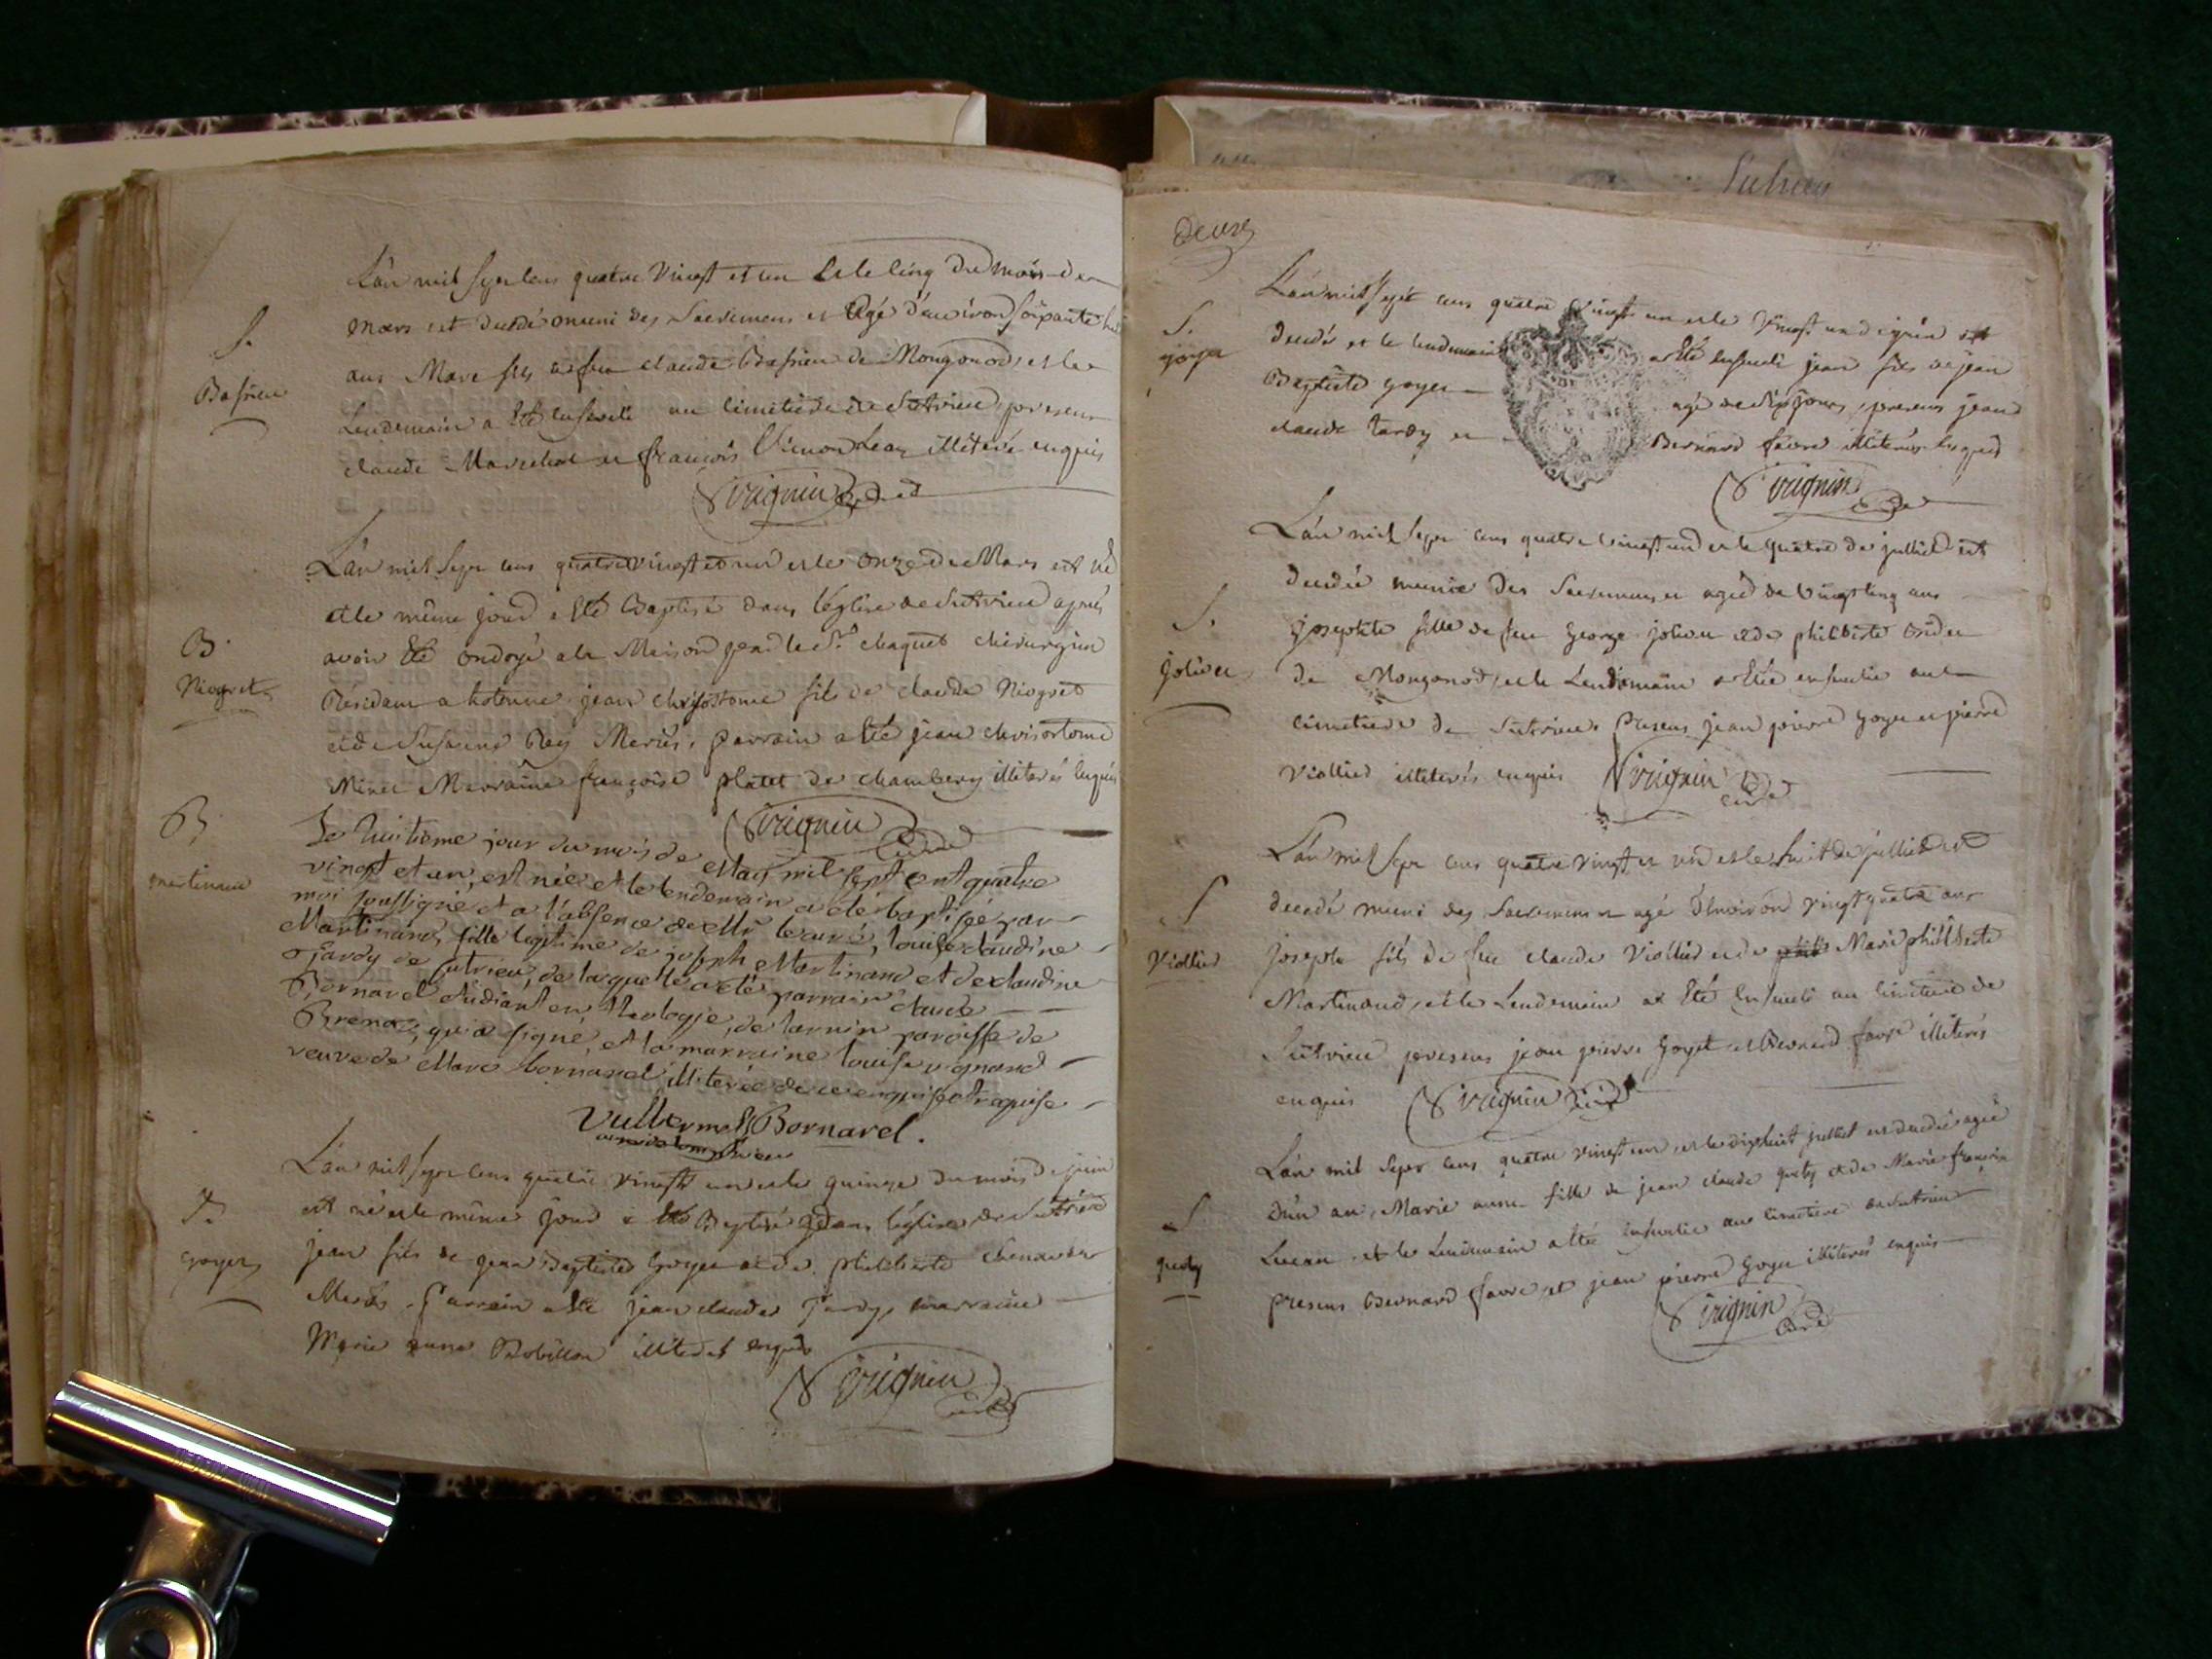 L'an mil sept cens quatre vingt et un et le cinq du mois de
mars est decedé muni des Sacremens et agé d'environ soixante
ans Marc fils de feu claude Bassieu de Mongonod, et le
Lendemain a Eté enseveli au cimetiere de Sutrieu, presens
claude Marechal et francois illiterés enquis
S
Bassieu
Virignin curé
L'an mil sept cens quatrevingt et un et le onze de Mars est né
et le même jour a Eté Baptisé dans l'église de Sutrieu après
avoir Eté ondoyé a la Maison par le Sr chaquet chirurgien
Résidant a hotonne jean chrisostome fils de claude Niogret
et de Susanne Rey Mariés, parrain a Eté jean chrisostome
Minet Marraine françoise platet de chambery illiterés enquis
B
Niogret
Virignin curé
Le huitieme jour du mois de May mil sept cent quatre
vingt et un, est née et le lendemain a été baptisée par
moi soussigné et a l'absence de Mr le curé, louise claudine
Martinand, fille legitime de joseph Martinand et de claudine
Tardy de Sutrieu, de laquelle a été parrain claude
Bornarel étudiant en theologie, de larnin paroisse de
Brenaz, qui a signé, et la marraine louise
veuve de Marc bornarel illiterée de ce enquise et requise
B
martinand
Vulliermet Bornarel.
L'an mil sept cens quatre vingt un et le quinze du mois de juin
est né et le même jour a Eté Baptisé dans l'église de Sutrieu
jean fils de jean Baptiste Goyet et de philiberte
Mariés, Parrain a Eté jean claude Tardy, marraine
Marie anne Robillon illiterés enquis
Goyet
Virignin curé
Deux
L'an mil sept cens quatre vingt un et le vingt un de juin est
decedé et le lendemain a Eté enseveli jean fils de jean
Baptiste Goyet agé de six jours, presens jean
claude tardy et Bernard favre illiterés enquis
S.
goyet
Virignin curé
L'an mil sept cens quatre vingt un et le quatre de julliet est
decedée munie des Sacremens et agée de vingt cinq ans
josephte fille de feu George jolieu et de philiberte
de Mongonod, et le Lendemain a Etée ensevelie au
cimetiere de Sutrieu, Presens jean pierre Goyet et pierre
Viollied illiterés enquis
S.
jolieu
Virignin curé
L'an mil sept cens quatre vingt et un et le huit de julliet est
decedé muni des Sacremens et agé d'environ vingt quatre ans
joseph fils de feu claude Viollied et de Marie philiberte
Martinand, et le Lendemain a Eté enseveli au cimetiere de
Sutrieu presens jean pierre Goyet et Bernard favre illiterés
enquis
S
Viollied
Virignin curé
L'an mil sept cens quatre vingt un, et le dixhuit julliet est decedée agée
d'un an, Marie anne fille de jean claude et de Marie françoise
et le Lendemain a Eté ensevelie au cimetiere de Sutrieu
presens Bernard favre et jean pierre Goyet illiterés enquis
S
Virignin curé